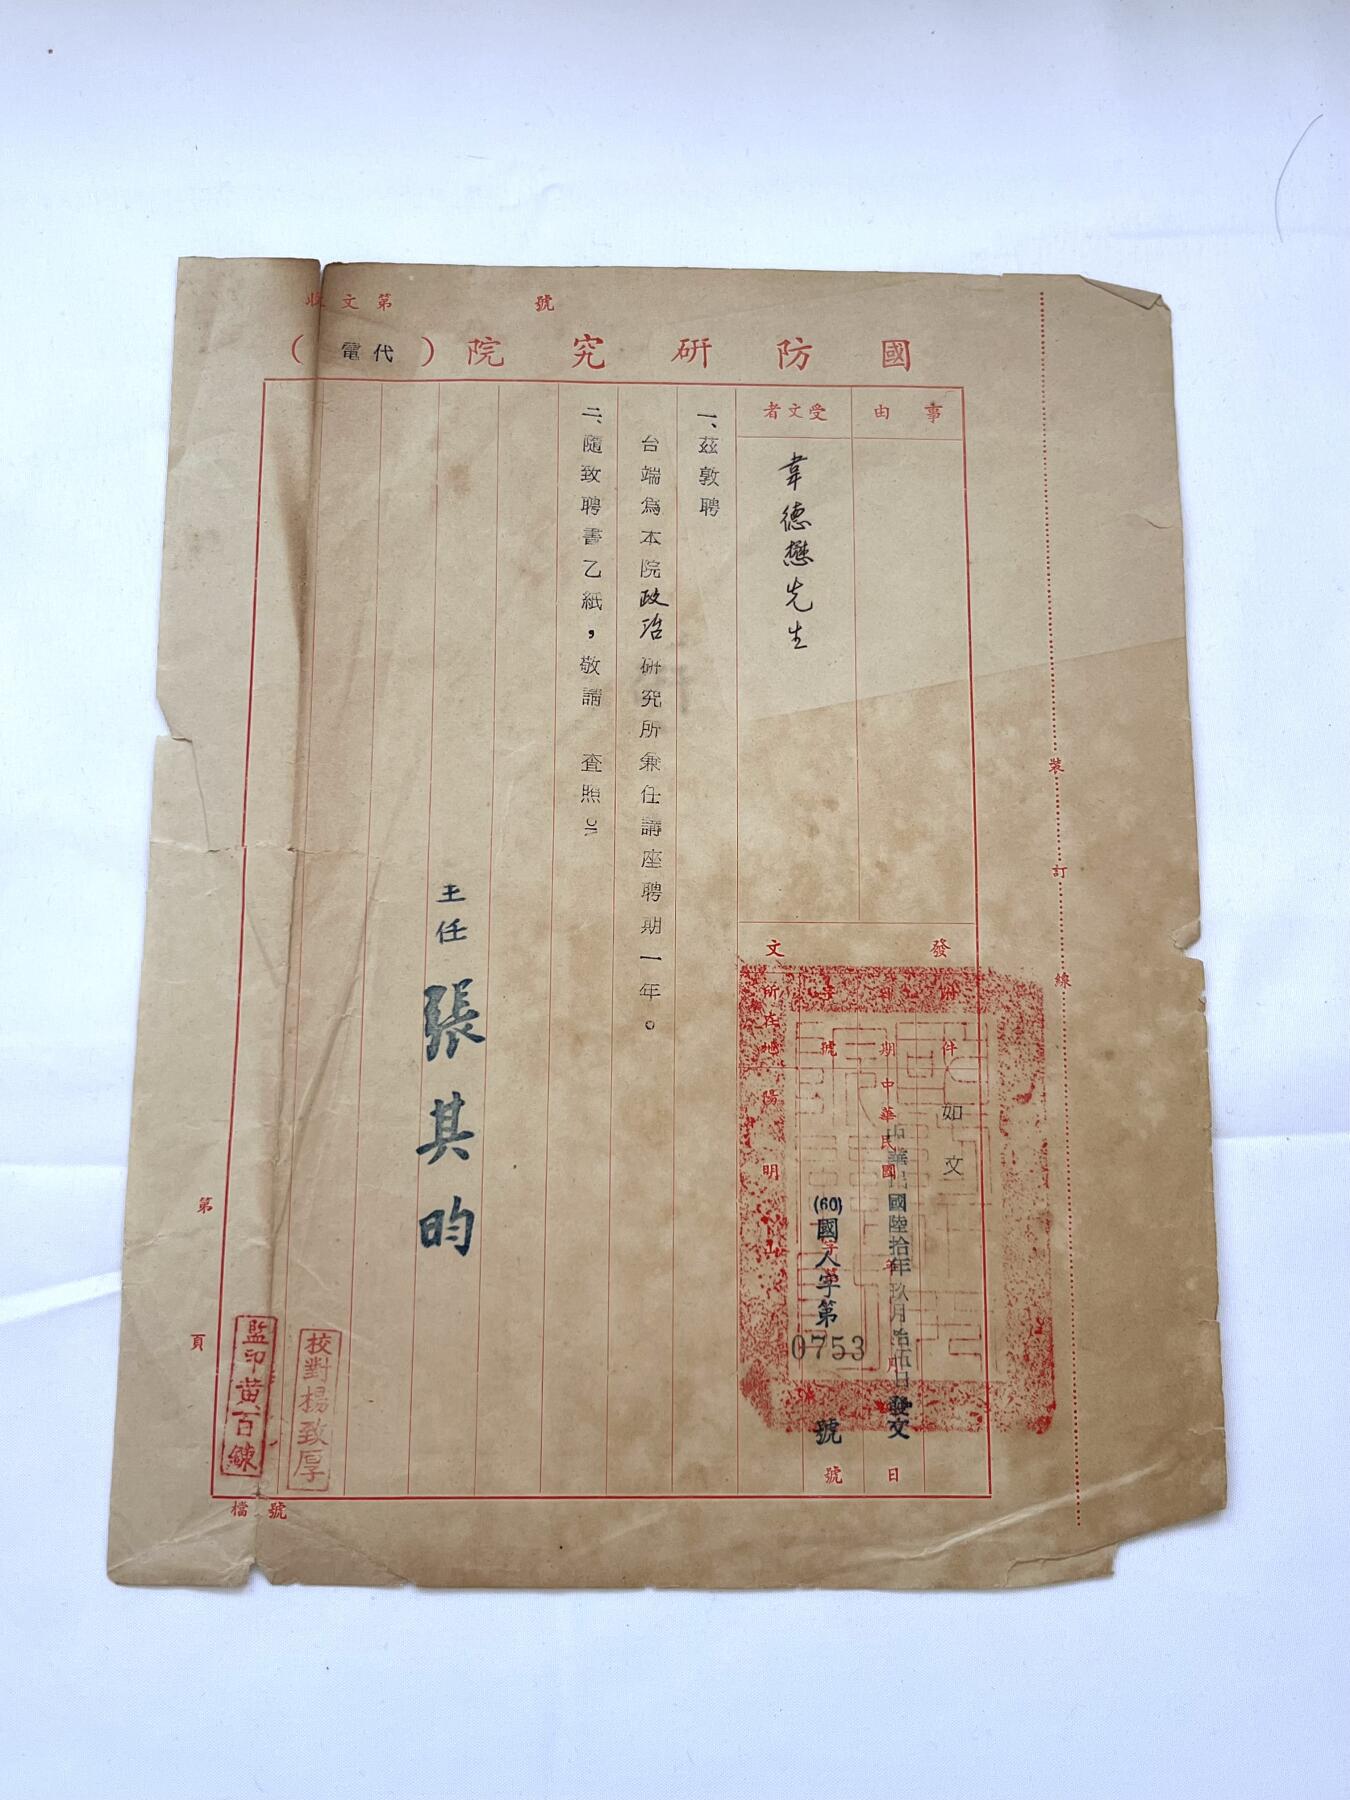 收文第 號
國防研究院（代電）
事由
受文者
韋德懋先生
發文
附件
如文
日期
中華民國 年 月 日
中華民國陸拾年玖月拾伍日發文
字號
字第 號
(60)國人字第0753號
所在地
陽明山
一、茲敦聘
台端為本院政治研究所兼任講座聘期一年。
二、隨致聘書乙紙，敬請 查照
主任 張其昀
校對楊致厚
監印黃百鍊
裝訂線
第 頁
檔號